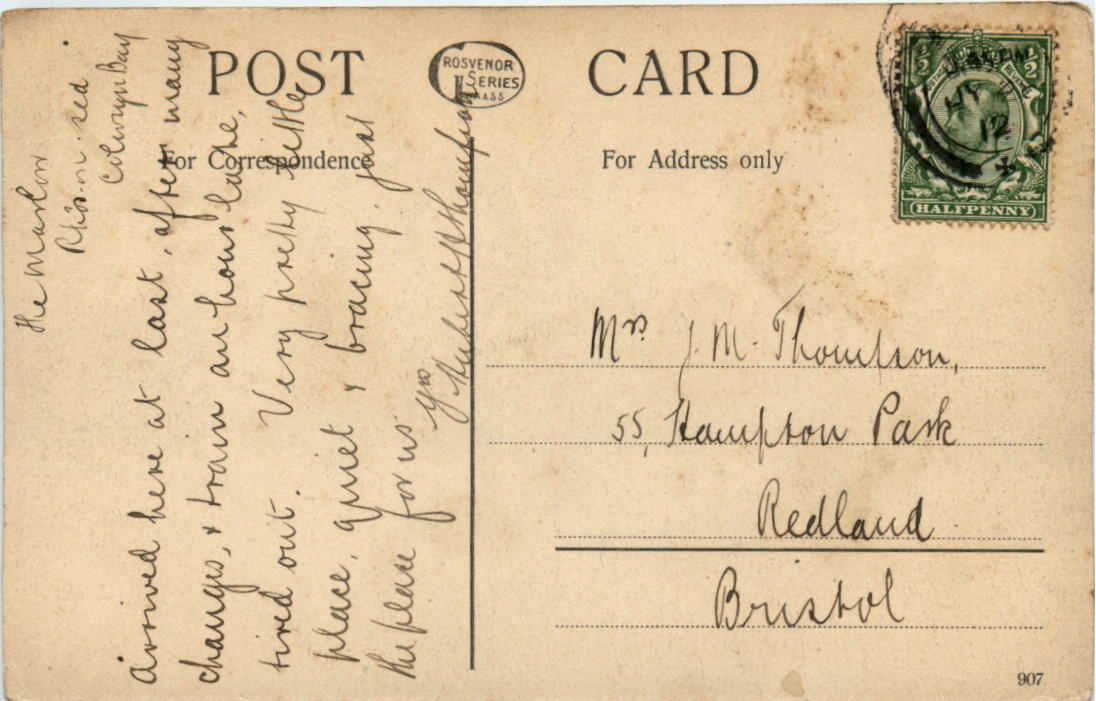 POST CARD
GROSVENOR
SERIES
For Correspondence
For Address only
HALFPENNY
12
Rhos-on-sea
Colwyn Bay
Arrived here at last, after many
changes, & train an hour late,
tired out. Very pretty little
place, quiet & bracing, just
the place for us
Thompson
Mrs J. M. Thompson,
55, Hampton Park
Redland
Bristol
907